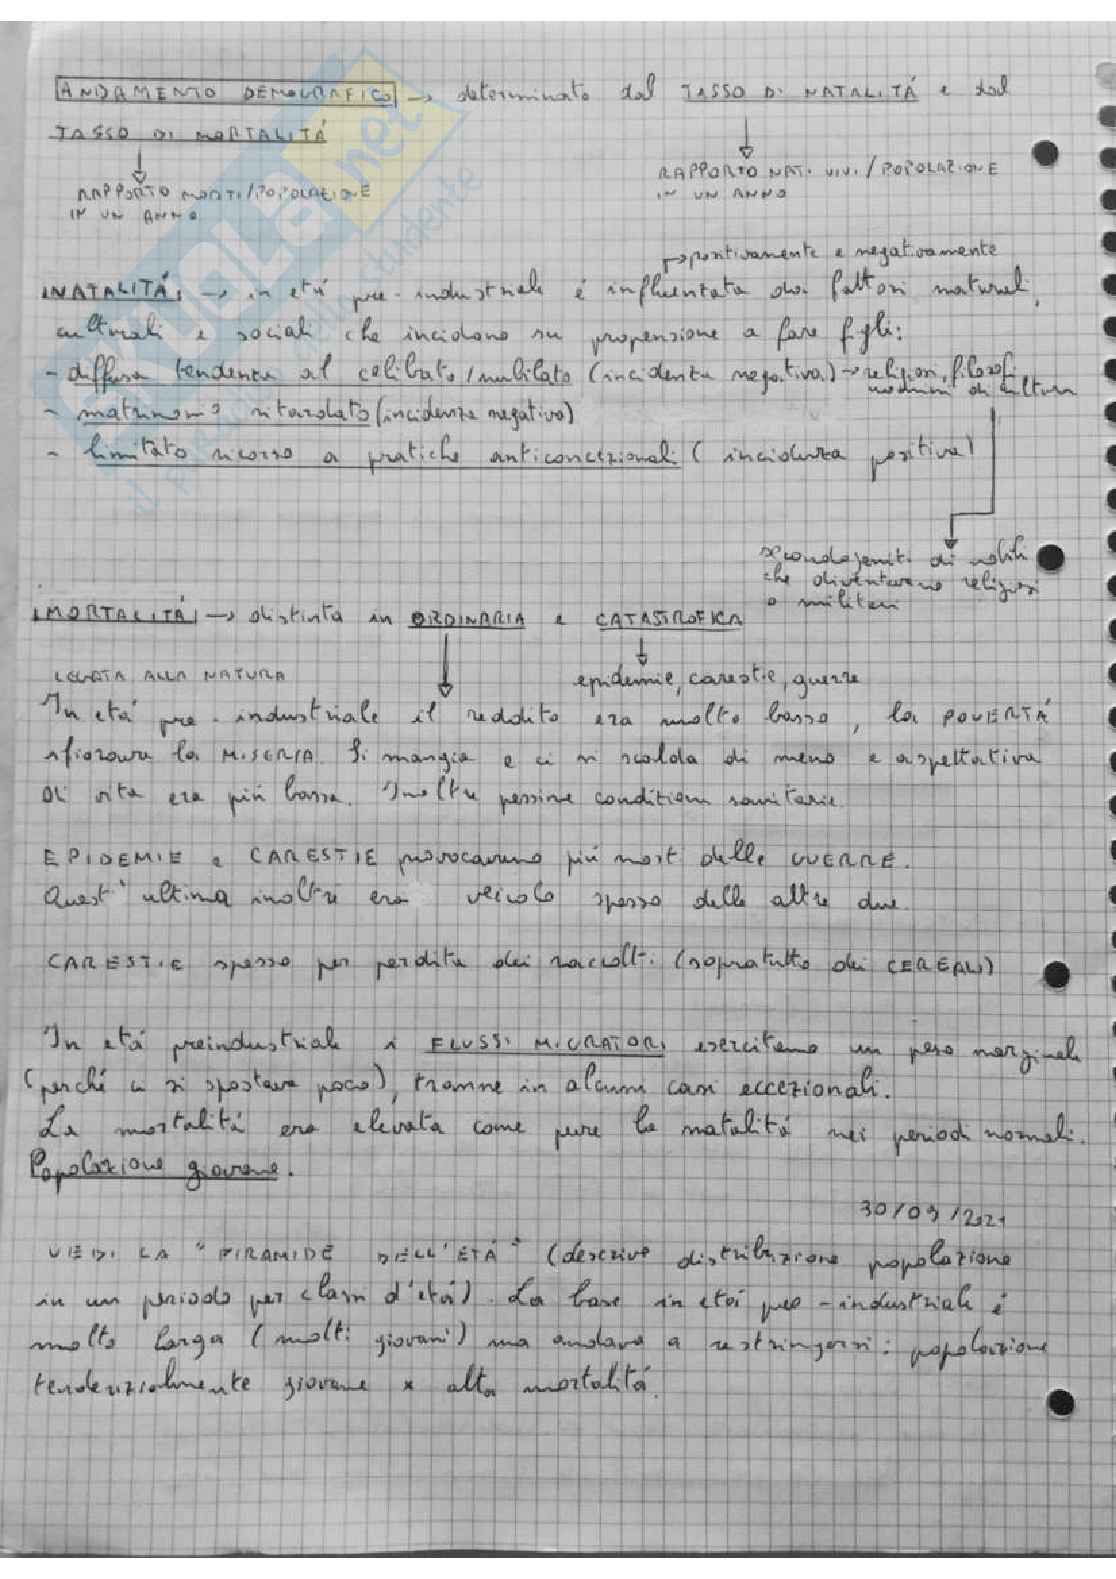 ANDAMENTO DEMOGRAFICO → determinato dal TASSO DI NATALITÁ e dal
TASSO DI MORTALITÁ
RAPPORTO NATI VIVI / POPOLAZIONE
IN UN ANNO
RAPPORTO MORTI / POPOLAZIONE
IN UN ANNO
positivamente e negativamente
NATALITÁ → in etá pre-industriale é influentata da fattori naturali,
culturali e sociali che incidono su propensione a fare figli:
- diffusa tendenza al celibato/nubilato (incidenza negativa) → religiosi, filosofi,
uomini di cultura
- matrimonio ritardato (incidenza negativa)
- limitato ricorso a pratiche anticoncezionali (incidenza positiva)
secondogeniti di nobili
che diventavano religiosi
o militari
MORTALITÁ → distinta in ORDINARIA e CATASTROFICA
LEGATA ALLA NATURA
epidemie, carestie, guerre
In etá pre-industriale il reddito era molto basso, la POVERTÁ
sfiorava la MISERIA. Si mangia e ci si scalda di meno e aspettativa
di vita era piú bassa. Inoltre pessime condizioni sanitarie.
EPIDEMIE e CARESTIE provocavano piú morti delle GUERRE.
Quest'ultima inoltre era veicolo spesso delle altre due.
CARESTIE spesso per perdita dei raccolti (sopratutto dei CEREALI)
In etá preindustriale i FLUSSI MIGRATORI esercitano un peso marginale
(perché ci si spostava poco), tranne in alcuni casi eccezionali.
La mortalitá era elevata come pure la natalitá nei periodi normali.
Popolazione giovane.
30/09/2021
VEDI LA "PIRAMIDE DELL'ETÁ" (descrive distribuzione popolazione
in un periodo per classi d'etá). La base in etá pre-industriale é
molto larga (molti giovani) ma andava a restringersi: popolazione
tendenzialmente giovane x alta mortalitá.
SKUOLA.net